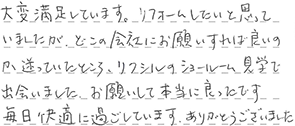 大変満足しています。リフォームしたいと思って
いましたが、どこの会社にお願いすれば良いの
か、迷っていたところ、リクシルのショールーム見学で
出会いました。お願いして本当に良かったです
毎日快適に過ごしています。ありがとうございました